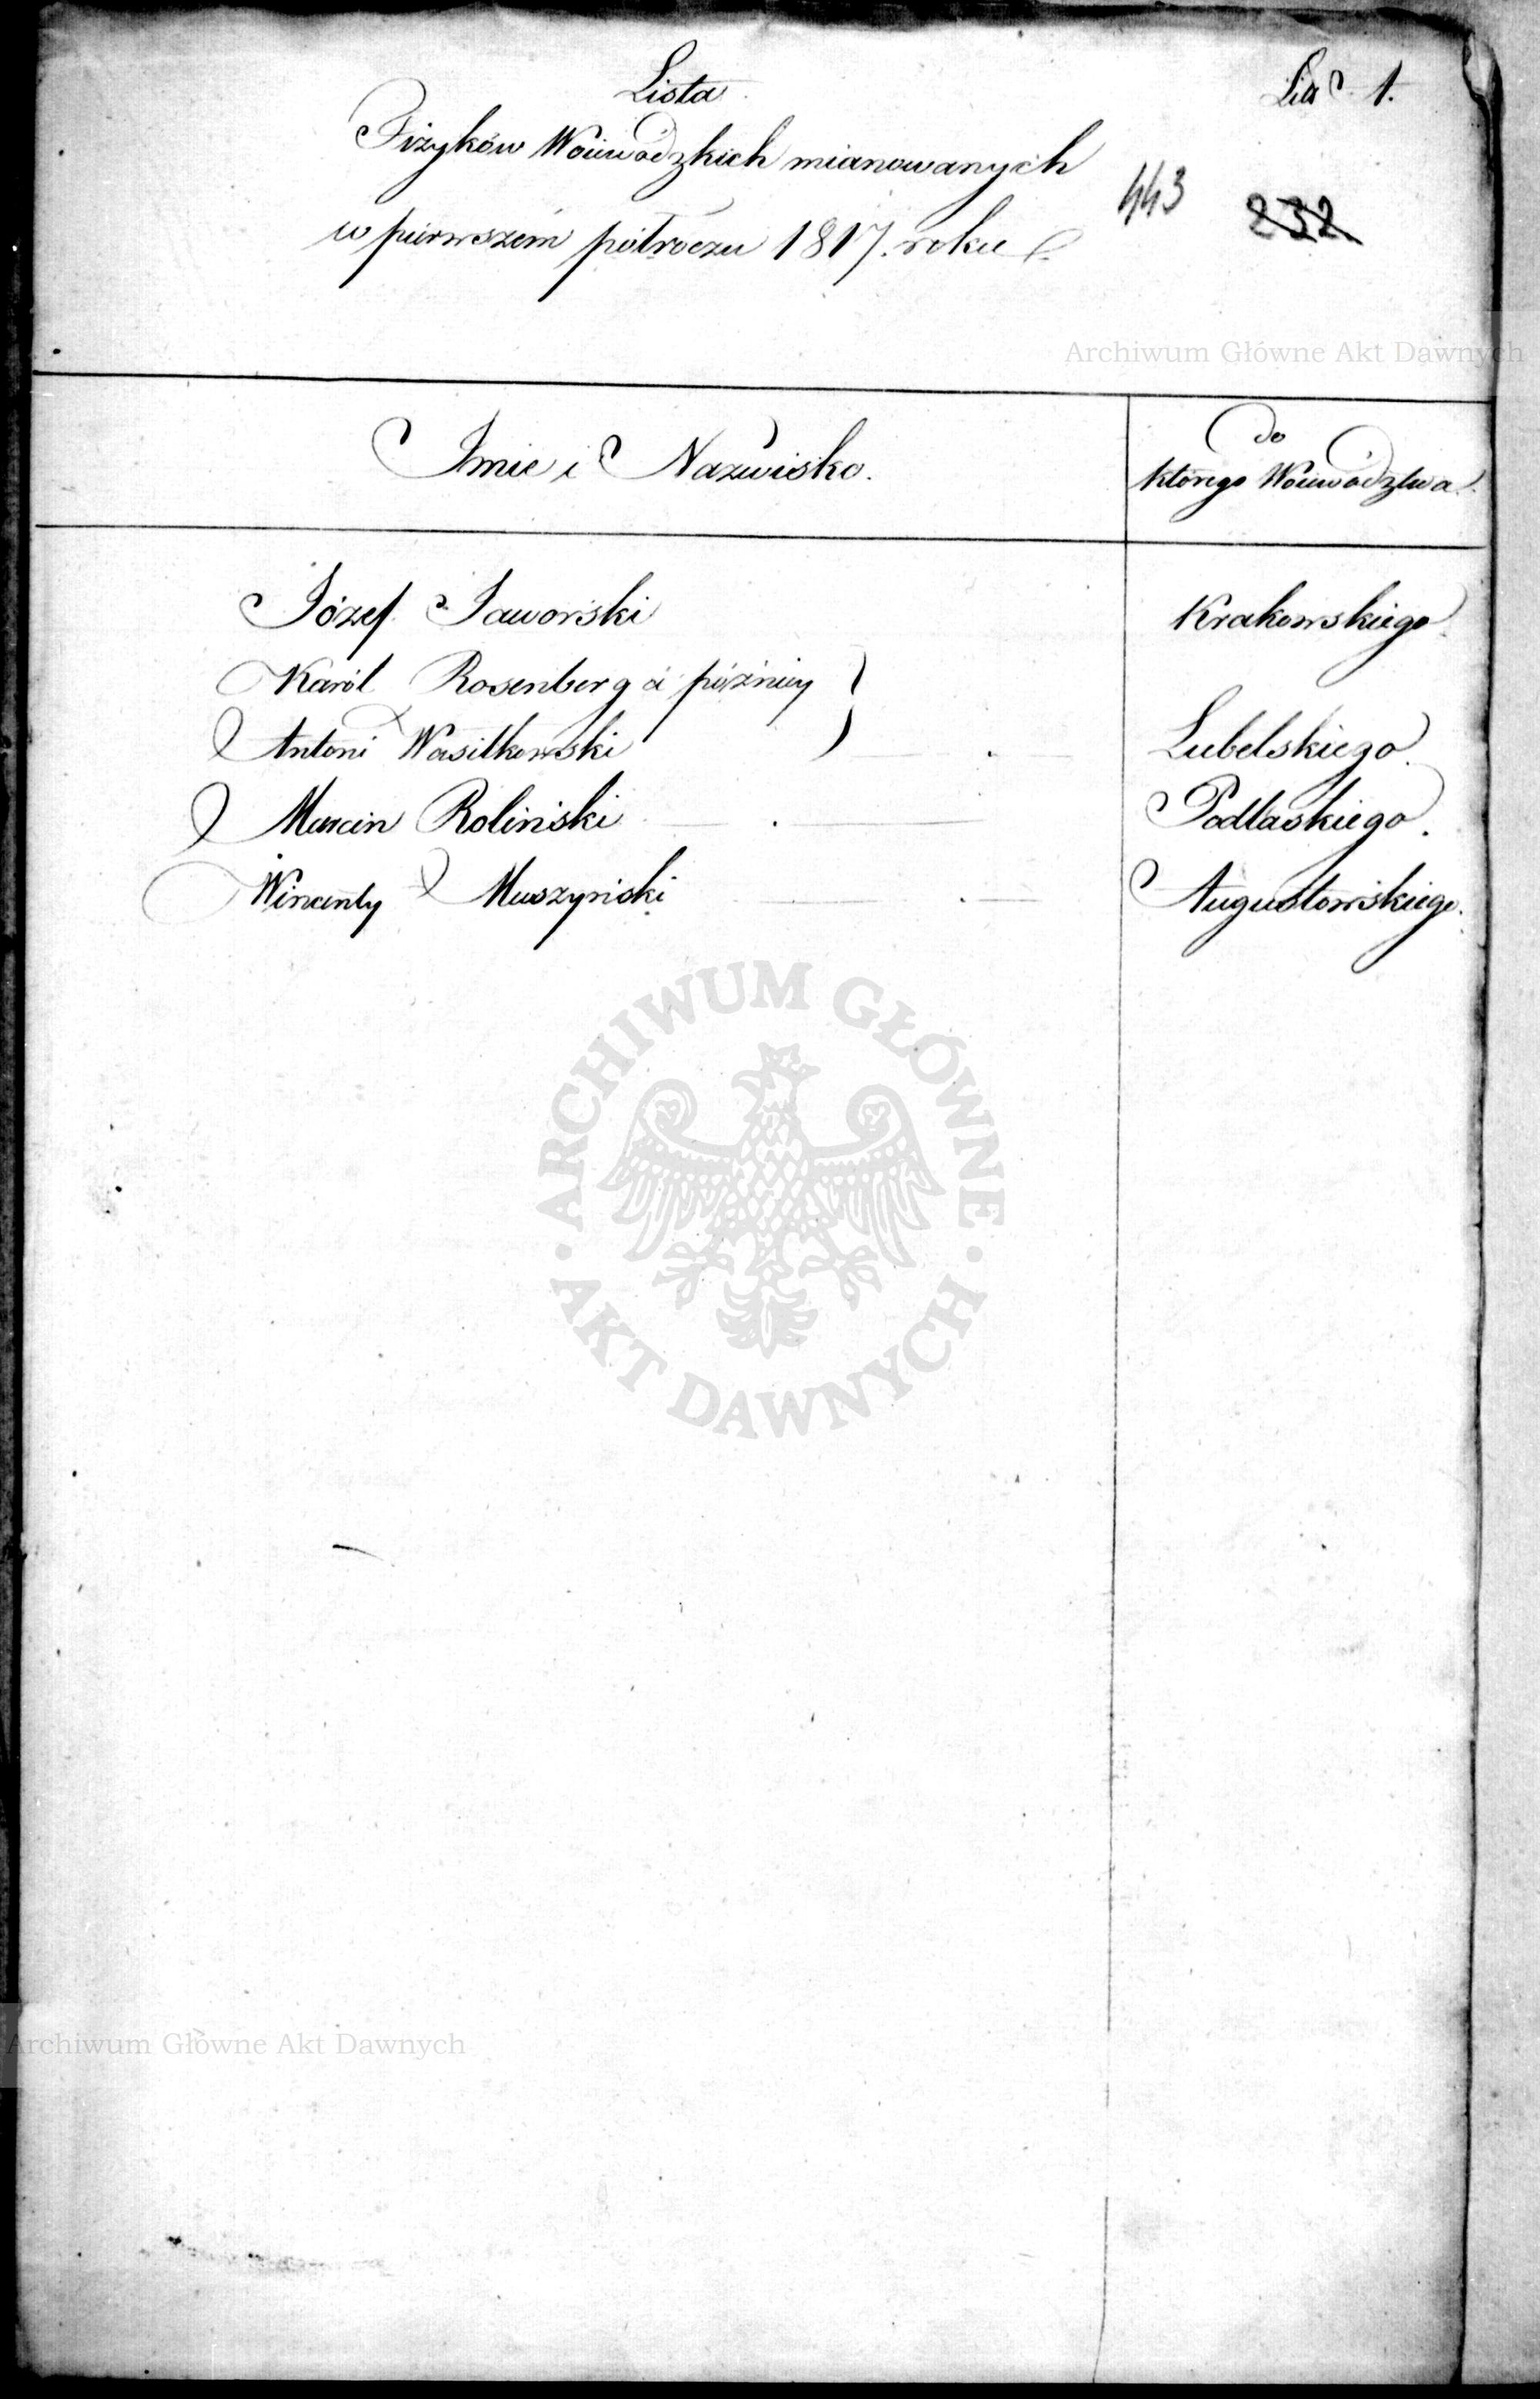 Lista
Lia C. 1.
Fizyków Woiewódzkich mianowanych
443 232
w pierwszém półroczu 1817. roku
Archiwum Główne Akt Dawnych
Imie i Nazwisko.
do
którego Woiewództwa.
Józef Jaworski
Krakowskiego
Karól Rosenberg a późniey
Antoni Wasilkowski
Lubelskiego.
Marcin Roliński
Podlaskiego.
Wincenty Muszyński
Augustowskiego.
ARCHIWUM GŁÓWNE
AKT DAWNYCH
Archiwum Główne Akt Dawnych